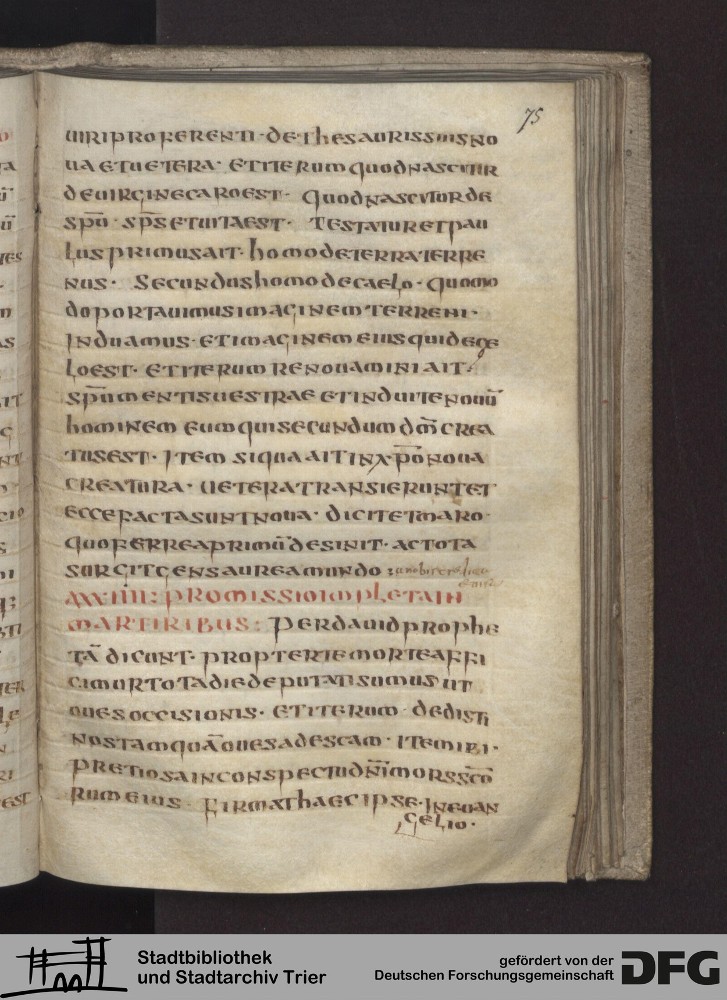 75
uiri proferenti· de thesauris suis no
ua et uetera· et iterum quod nascitur
de uirgine caro est· quod nascitur de
spū· sps̄ et uita est· testatur et pau
lus primus ait· homo de terra terre
nus· secundus homo de caelo· quomo
do portauimus imaginem terreni·
induamus· et imaginem eius qui de cae
lo est· et iterum renouamini ait·
spū mentis uestrae et induite nouū
hominem eum qui secundum dm̄ crea
tus est· item si qua ait in xp̄o noua
creatura· uetera transierunt et
ecce facta sunt noua· dicit et maro·
quo ferrea primū desinit· ac tota
surgit gens aurea mundo:
XXVIIII: promissio impleta in
martiribus: per dauid prophe
tā dicunt· propter te morte affi
cimur tota die deputati sumus ut
oues occisionis· et iterum· dedisti
nos tamquā oues ad escam· item ibi·
pretiosa in conspectu dn̄i mors sc̄o
rum eius· firmat haec ipse· in euan
gelio·
Stadtbibliothek
und Stadtarchiv Trier
gefördert von der
Deutschen Forschungsgemeinschaft
DFG